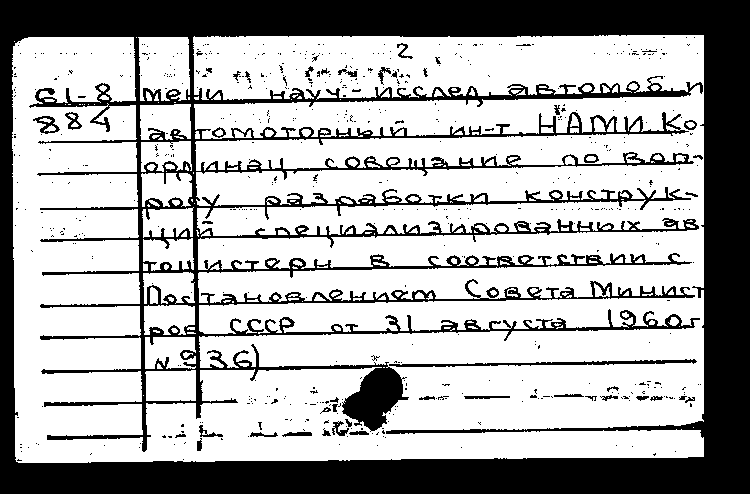 2
61-8 мени науч.-исслед. автомоб. и
884 автомоторный ин-т. НАМИ. Ко-
ординац. совещание по воп-
росу разработки конструк-
ций специализированных ав-
тоцистерн в соответствии с
Постановлением Совета Минист
ров СССР от 31 августа 1960г.
№ 936)